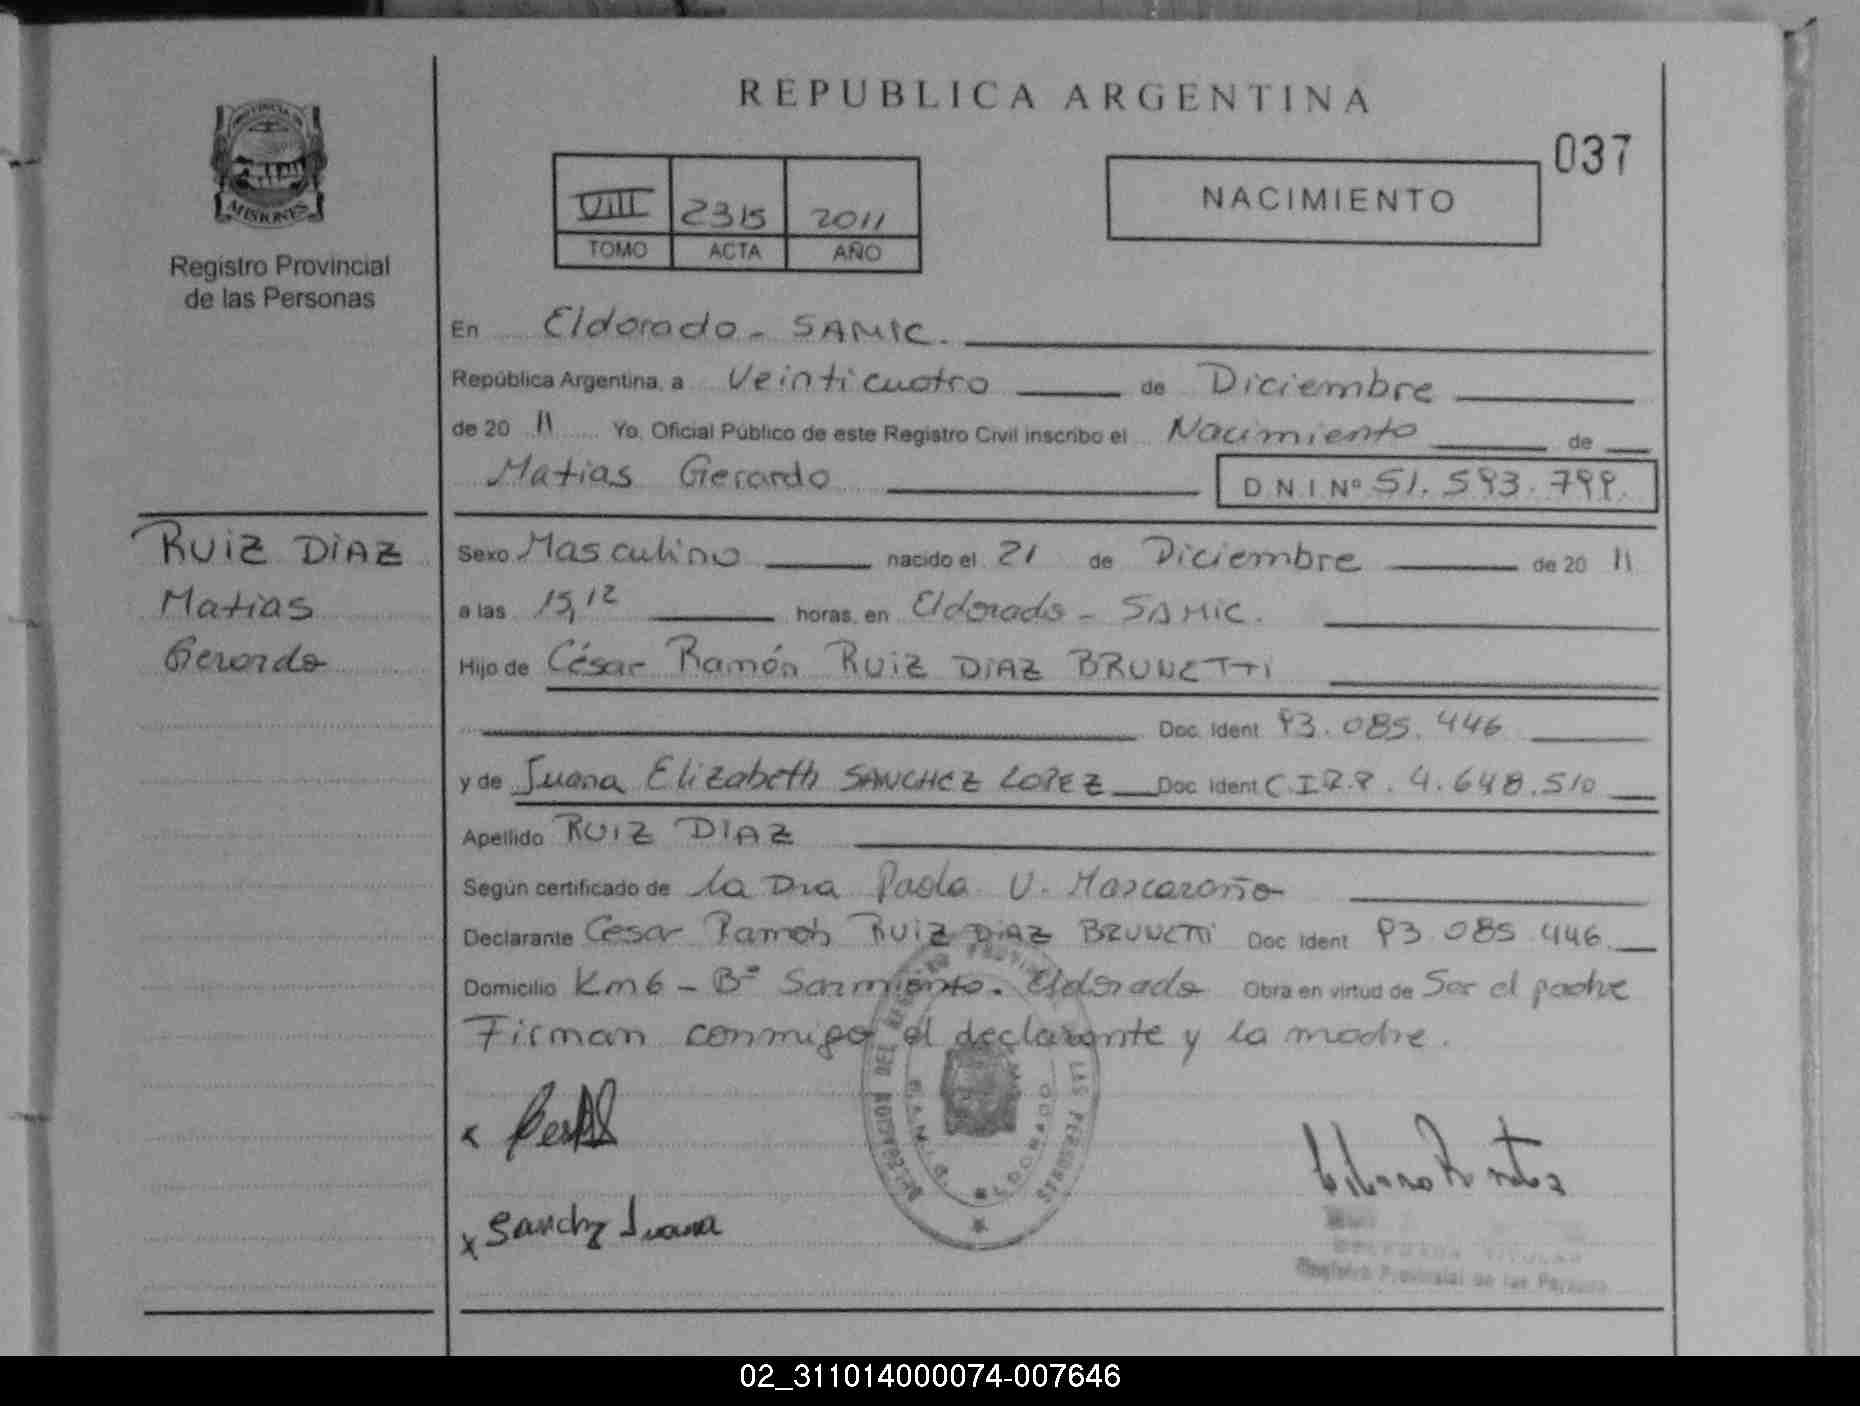 REPUBLICA ARGENTINA
037
MISIONES
Registro Provincial
de las Personas
VIII 2315 2011
TOMO ACTA AÑO
NACIMIENTO
En Eldorado - SAMIC.
República Argentina, a Veinticuatro de Diciembre
de 20 11 Yo, Oficial Público de este Registro Civil inscribo el Nacimiento de
Matias Gerardo DNI Nº 51.593.799.
RUIZ DIAZ
Matias
Gerardo
Sexo Masculino nacido el 21 de Diciembre de 20 11
a las 15,12 horas, en Eldorado - SAMIC.
Hijo de César Ramón RUIZ DIAZ BRUNETTI
Doc. Ident 93.085.446
y de Juana Elizabeth SANCHEZ LOPEZ Doc Ident C.I.R.P. 4.648.510
Apellido RUIZ DIAZ
Según certificado de la Dra Paola V. Mascaroño
Declarante Cesar Ramón RUIZ DIAZ BRUNETTI Doc Ident 93.085.446
Domicilio Km6 - Bº Sarmiento. Eldorado Obra en virtud de Ser el padre
Firman conmigo el declarante y la madre.
DELEGACION DEL REGISTRO PROVINCIAL DE LAS PERSONAS
ELDORADO
x
x Sanchz Juana
Registro Provincial de las Personas
02_311014000074-007646